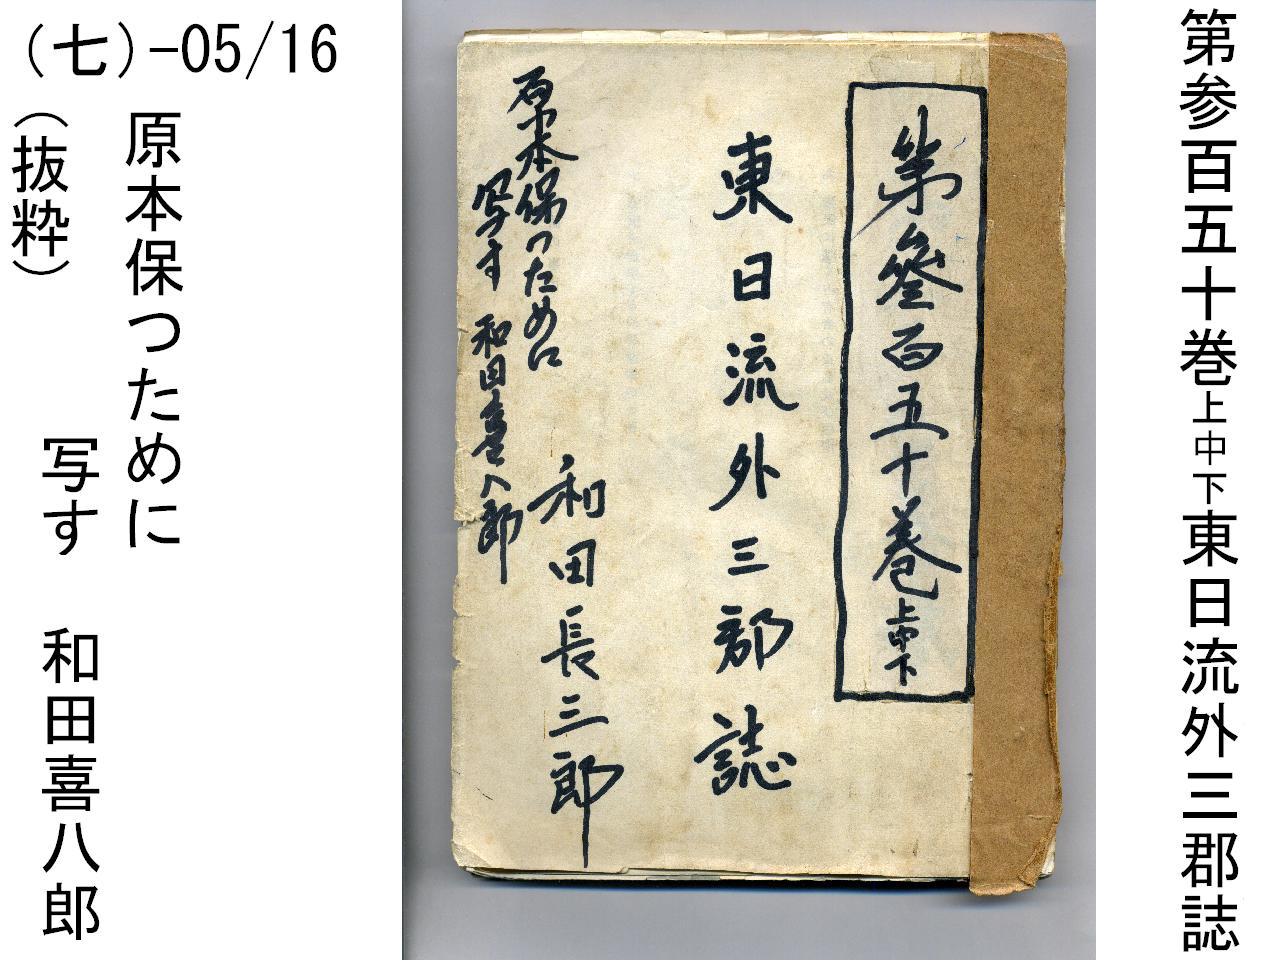 第参百五十巻上中下東日流外三郡誌
第參百五十巻上中下
東日流外三郡誌
和田長三郎
原本保つために
写す 和田喜八郎
(七)-05/16
原本保つために
写す 和田喜八郎
(抜粋)